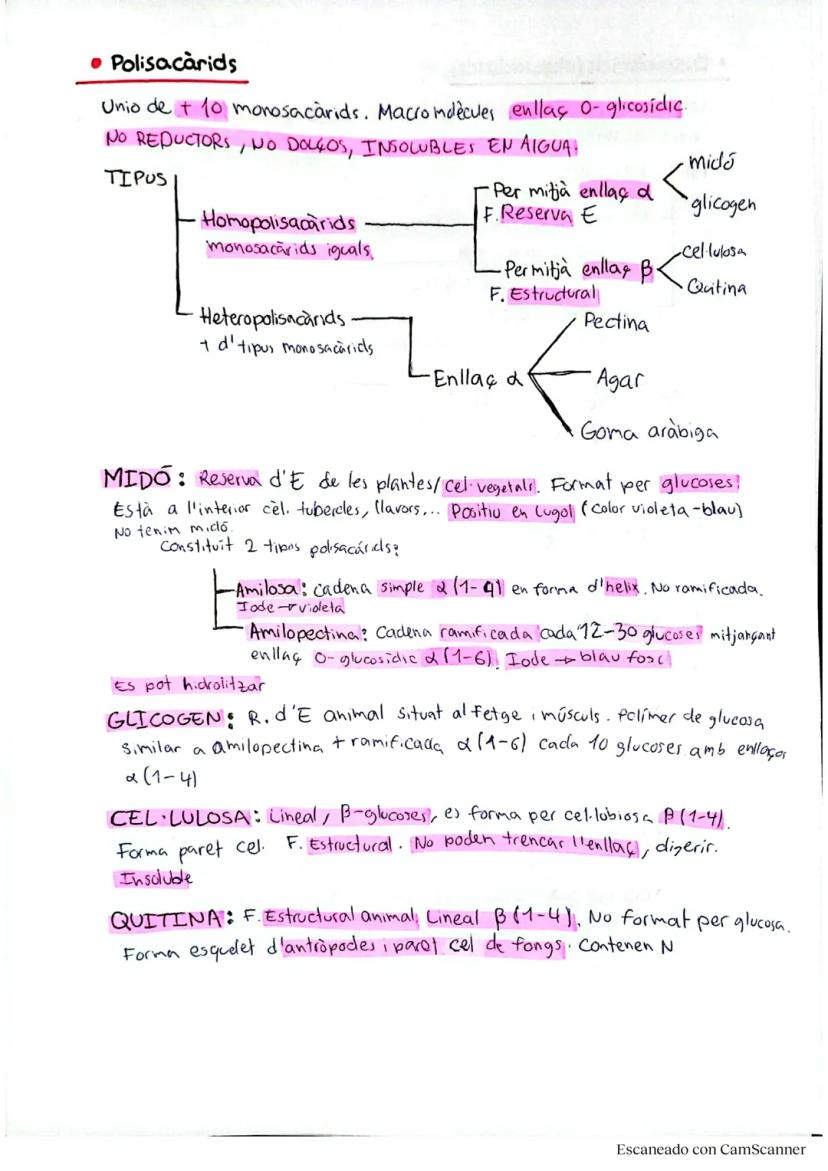 • Polisacàrids
Unio de + 10 monosacàrids. Macromolècules enllaç O-glicosídic.
NO REDUCTORS, NO DOLÇOS, INSOLUBLES EN AIGUA.
TIPUS
Homopolisacàrids
monosacàrids iguals.
Per mitjà enllaç α
F. Reserva E
midó
glicogen
Per mitjà enllaç β
F. Estructural
cel·lulosa
Quitina
Heteropolisacàrids
+ d'tipus monosacàrids
Enllaç α
Pectina
Agar
Goma aràbiga
MIDÓ: Reserva d'E de les plantes/cel·vegetals. Format per glucoses.
Està a l'interior cèl. tubercles, llavors,... Positiu en Lugol (color violeta-blau)
No tenim midó.
Constituït 2 tipos polisacárids:
Amilosa: cadena simple α (1-4) en forma d'helix. No ramificada.
Iode → violeta
Amilopectina: Cadena ramificada cada 12-30 glucoses mitjançant
enllaç O-glucosídic α (1-6). Iode → blau fosc
Es pot hidrolitzar
GLICOGEN: R. d'E animal situat al fetge i músculs. Polímer de glucosa
similar a amilopectina + ramificada α (1-6) cada 10 glucoses amb enllaços
α (1-4)
CEL·LULOSA: Lineal, β-glucoses, es forma per cel·lobiosa β (1-4).
Forma paret cel. F. Estructural. No poden trencar l'enllaç, digerir.
Insoluble
QUITINA: F. Estructural animal. Lineal β (1-4). No format per glucosa.
Forma esquelet d'antròpodes i paret cel de fongs. Contenen N
Escaneado con CamScanner